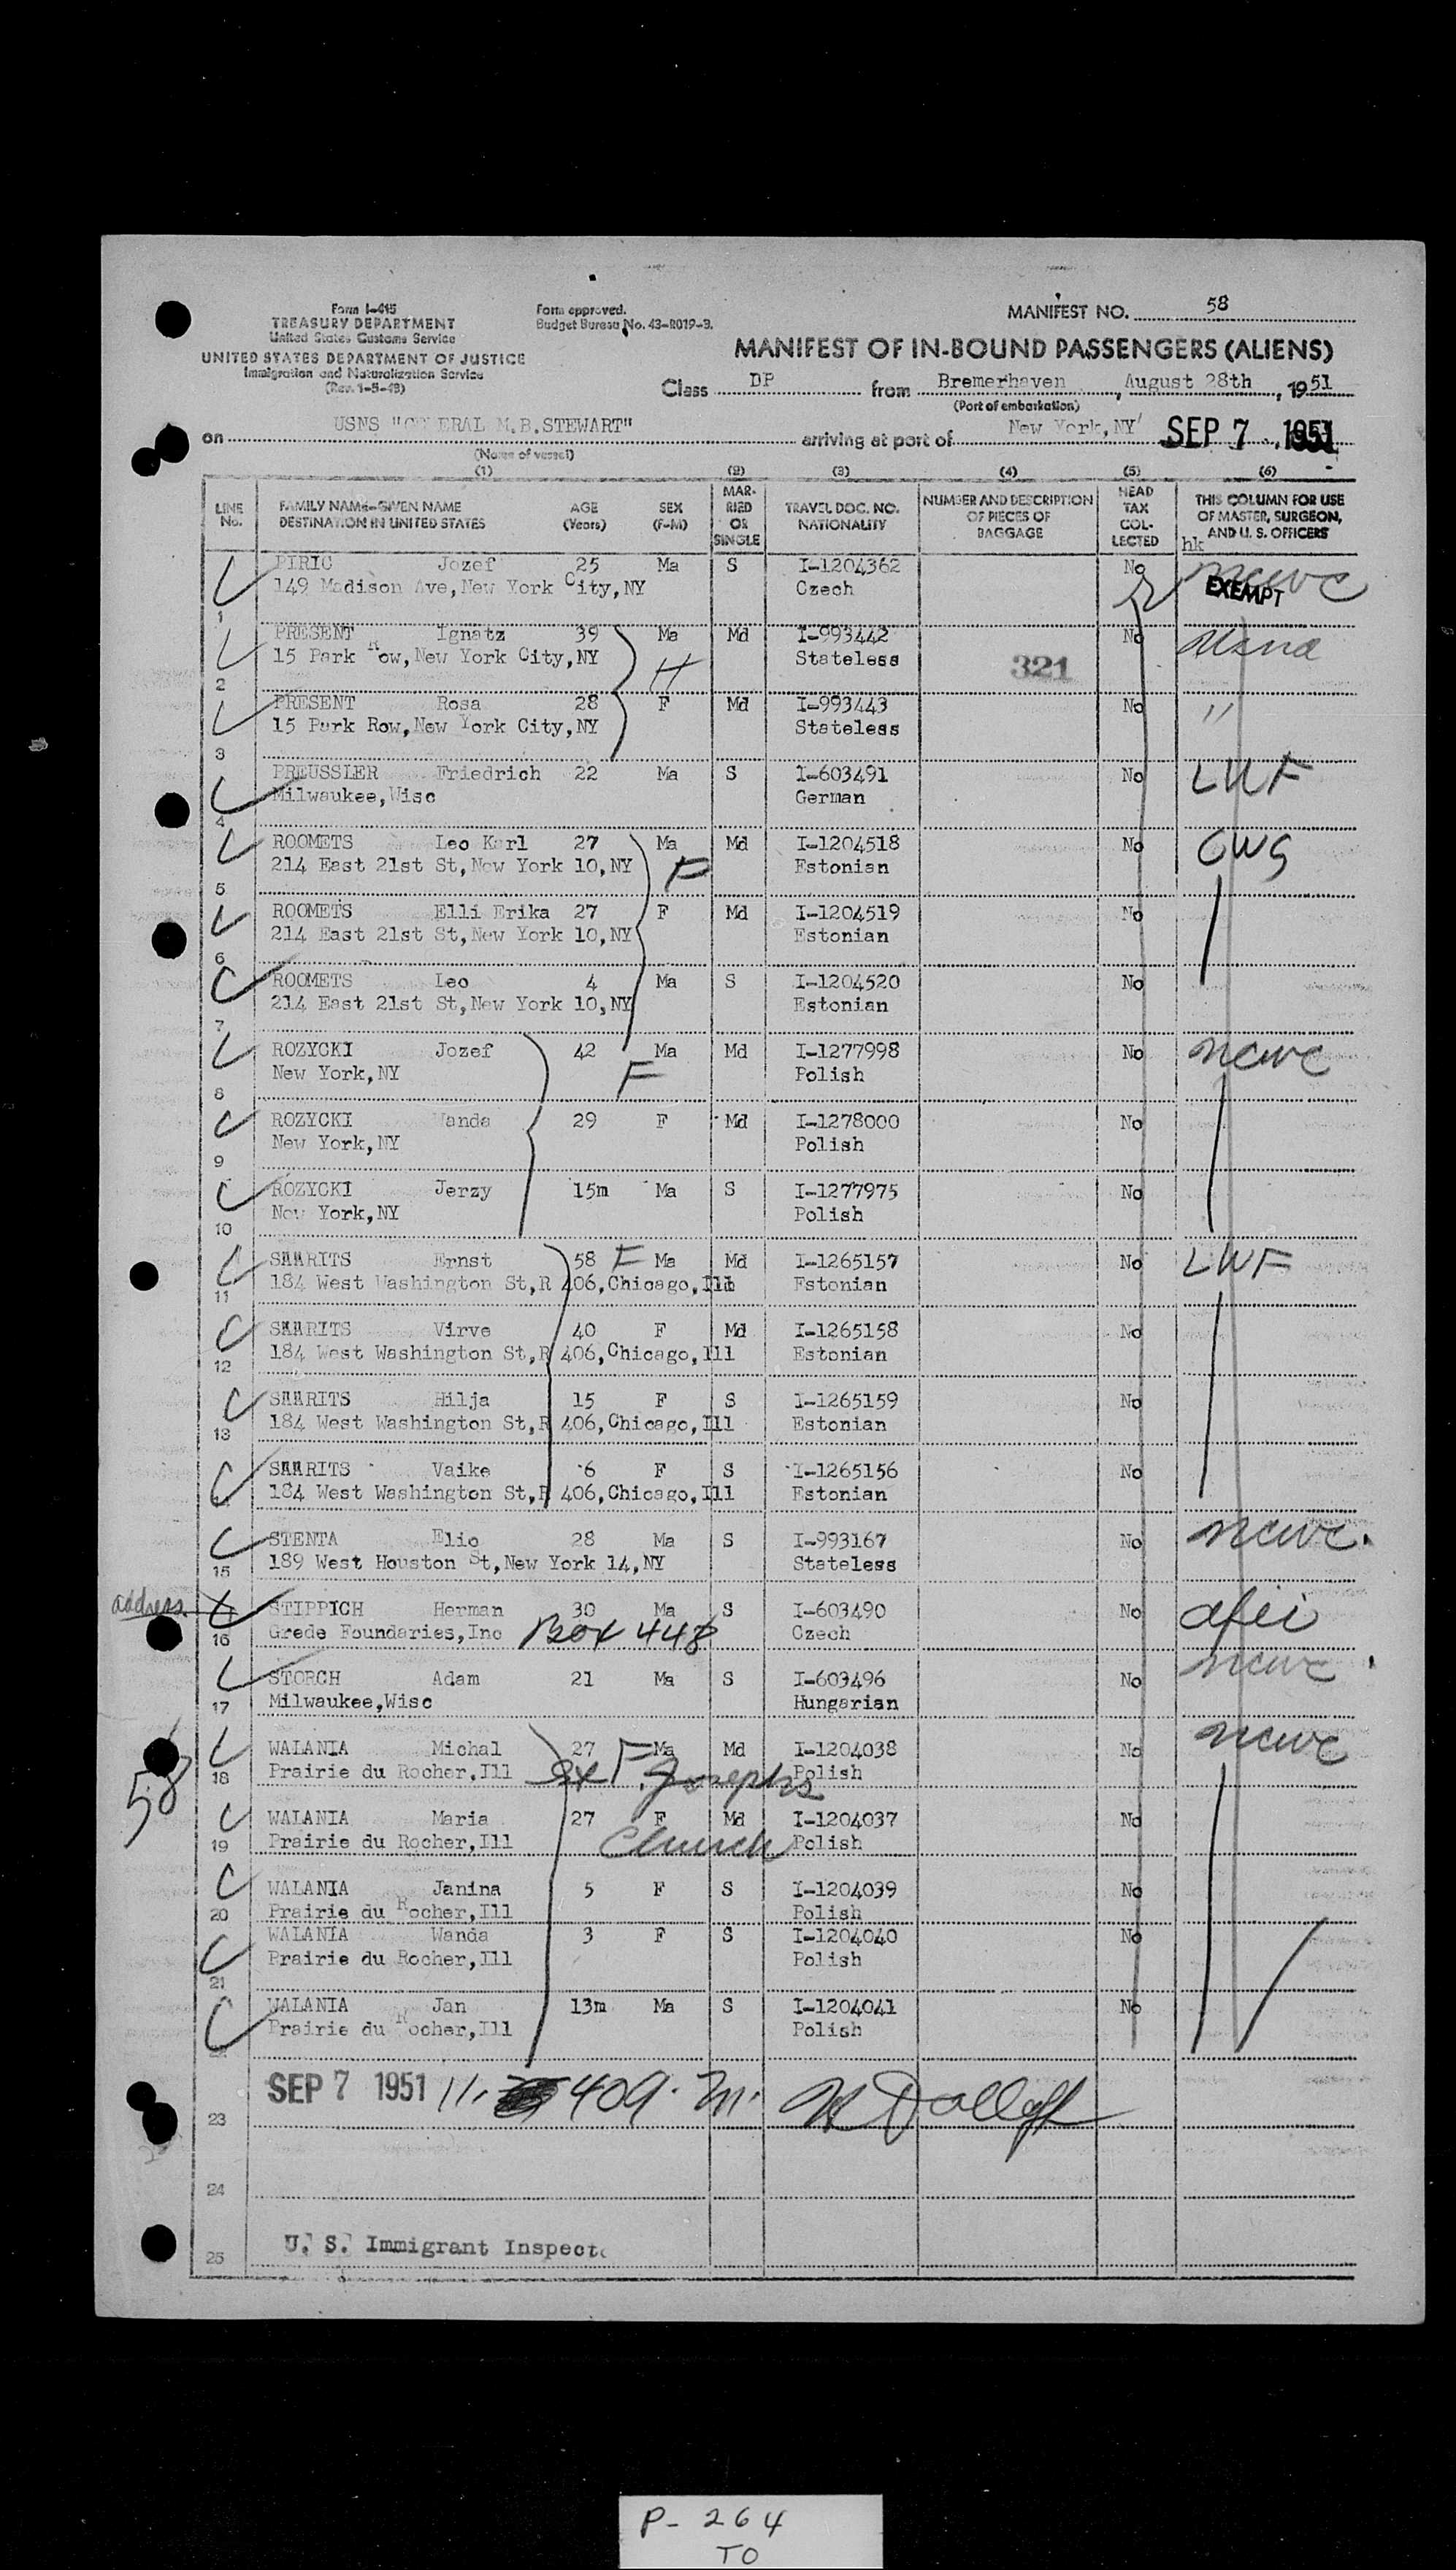 Form I-415
TREASURY DEPARTMENT
United States Customs Service
UNITED STATES DEPARTMENT OF JUSTICE
Immigration and Naturalization Service
(Rev. 1-5-48)
Form approved.
Budget Bureau No. 43-R019-3.
MANIFEST NO. 58
MANIFEST OF IN-BOUND PASSENGERS (ALIENS)
Class DP from Bremerhaven, August 28th, 1951
(Port of embarkation)
on USNS "GENERAL M.B.STEWART" arriving at port of New York, NY SEP 7 1951
(Name of vessel)
(1) (2) (3) (4) (5) (6)
LINE No. FAMILY NAME-GIVEN NAME DESTINATION IN UNITED STATES AGE (Years) SEX (F-M) MARRIED OR SINGLE TRAVEL DOC. NO. NATIONALITY NUMBER AND DESCRIPTION OF PIECES OF BAGGAGE HEAD TAX COLLECTED THIS COLUMN FOR USE OF MASTER, SURGEON, AND U. S. OFFICERS
hk
PIRIC Jozef 25 Ma S I-1204362 No ncwc
149 Madison Ave,New York City,NY Czech EXEMPT
1
PRESENT Ignatz 39 Ma Md I-993442 No usna
15 Park Row,New York City,NY H Stateless 321
2
PRESENT Rosa 28 F Md I-993443 No "
15 Park Row,New York City,NY Stateless
3
PREUSSLER Friedrich 22 Ma S I-603491 No LWF
Milwaukee,Wisc German
4
ROOMETS Leo Karl 27 Ma Md I-1204518 No CWS
214 East 21st St,New York 10,NY F Estonian
5
ROOMETS Elli Erika 27 F Md I-1204519 No
214 East 21st St,New York 10,NY Estonian
6
ROOMETS Leo 4 Ma S I-1204520 No
214 East 21st St,New York 10,NY Estonian
7
ROZYCKI Jozef 42 Ma Md I-1277998 No ncwc
New York,NY F Polish
8
ROZYCKI Wanda 29 F Md I-1278000 No
New York,NY Polish
9
ROZYCKI Jerzy 15m Ma S I-1277975 No
New York,NY Polish
10
SAARITS Ernst 58 F Ma Md I-1265157 No LWF
184 West Washington St,R 406,Chicago,Ill Estonian
11
SAARITS Virve 40 F Md I-1265158 No
184 West Washington St,R 406,Chicago,Ill Estonian
12
SAARITS Hilja 15 F S I-1265159 No
184 West Washington St,R 406,Chicago,Ill Estonian
13
SAARITS Vaike 6 F S I-1265156 No
184 West Washington St,R 406,Chicago,Ill Estonian
STENTA Elio 28 Ma S I-993167 No ncwc.
189 West Houston St,New York 14,NY Stateless
15
address STIPPICH Herman 30 Ma S I-603490 No afci
Grede Foundaries,Inc Box 448 Czech
16
STORCH Adam 21 Ma S I-603496 No ncwc.
Milwaukee,Wisc Hungarian
17
WALANIA Michal 27 F Ma Md I-1204038 No ncwc
Prairie du Rocher,Ill St Josephs Polish
18
58
WALANIA Maria 27 F Md I-1204037 No
Prairie du Rocher,Ill Church Polish
19
WALANIA Janina 5 F S I-1204039 No
Prairie du Rocher,Ill Polish
20
WALANIA Wanda 3 F S I-1204040 No
Prairie du Rocher,Ill Polish
21
WALANIA Jan 13m Ma S I-1204041 No
Prairie du Rocher,Ill Polish
SEP 7 1951
23
24
U. S. Immigrant Inspecto
25
P-264
TO